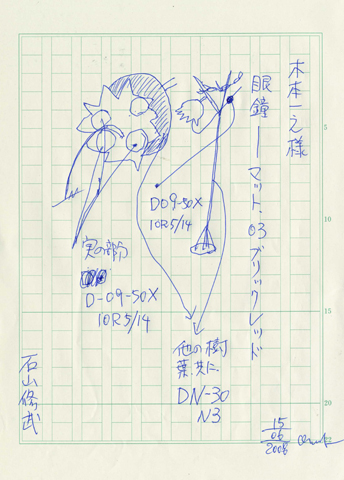 木本一之様
眼鏡ーマット.03 ブリックレッド
D09-50X
10R5/14
実の部分
D-09-50X
10R5/14
他の樹
葉共に
DN-30
N3
石山修武
5
10
15
20
15
06
2008